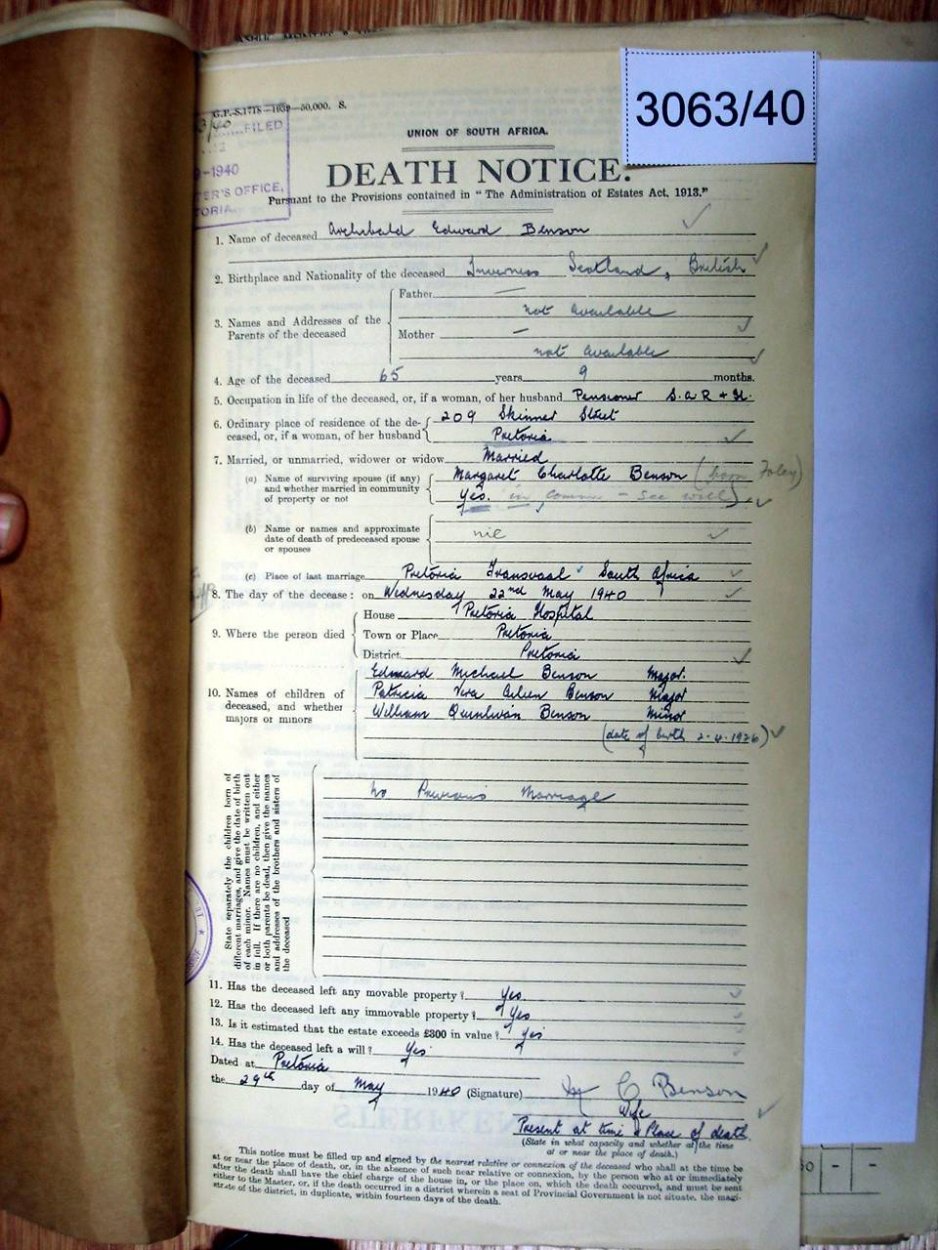 3063/40
G.P.-S.1778—1939—50,000. S.
FILED
-1940
ER'S OFFICE,
TORIA
UNION OF SOUTH AFRICA.
DEATH NOTICE.
Pursuant to the Provisions contained in "The Administration of Estates Act, 1913."
1. Name of deceased Archibald Edward Benson
2. Birthplace and Nationality of the deceased Inverness Scotland, British
3. Names and Addresses of the Parents of the deceased
Father —
not available
Mother —
not available
4. Age of the deceased 65 years 9 months.
5. Occupation in life of the deceased, or, if a woman, of her husband Pensioner S.A.R & H.
6. Ordinary place of residence of the de- 209 Skinner Street
ceased, or, if a woman, of her husband Pretoria
7. Married, or unmarried, widower or widow Married
(a) Name of surviving spouse (if any) Margaret Charlotte Benson (born Foley)
and whether married in community of property or not Yes. in comm - see will)
(b) Name or names and approximate
date of death of predeceased spouse nil
or spouses
(c) Place of last marriage Pretoria Transvaal South Africa
8. The day of the decease: on Wednesday 22nd May 1940
9. Where the person died
House Pretoria Hospital
Town or Place Pretoria
District Pretoria
10. Names of children of deceased, and whether majors or minors
Edward Michael Benson Major.
Patricia Vera Benson Major
William Quinlivan Benson Minor
(date of birth 2-4-1926)
State separately the children born of
different marriages, and give the date of birth
of each minor. Names must be written out
in full. If there are no children, and either
or both parents be dead, then give the names
and addresses of the brothers and sisters of
the deceased
No Previous Marriage
11. Has the deceased left any movable property? Yes
12. Has the deceased left any immovable property? Yes
13. Is it estimated that the estate exceeds £300 in value? Yes
14. Has the deceased left a will? Yes
Dated at Pretoria
the 29th day of May 1940 (Signature) M C Benson
Wife
Present at time & Place of death
(State in what capacity and whether at the time
at or near the place of death.)
This notice must be filled up and signed by the nearest relative or connexion of the deceased who shall at the time be
at or near the place of death, or, in the absence of such near relative or connexion, by the person who at or immediately
after the death shall have the chief charge of the house in, or the place on, which the death occurred, and must be sent
either to the Master, or, if the death occurred in a district wherein a seat of Provincial Government is not situate, the magi-
strate of the district, in duplicate, within fourteen days of the death.